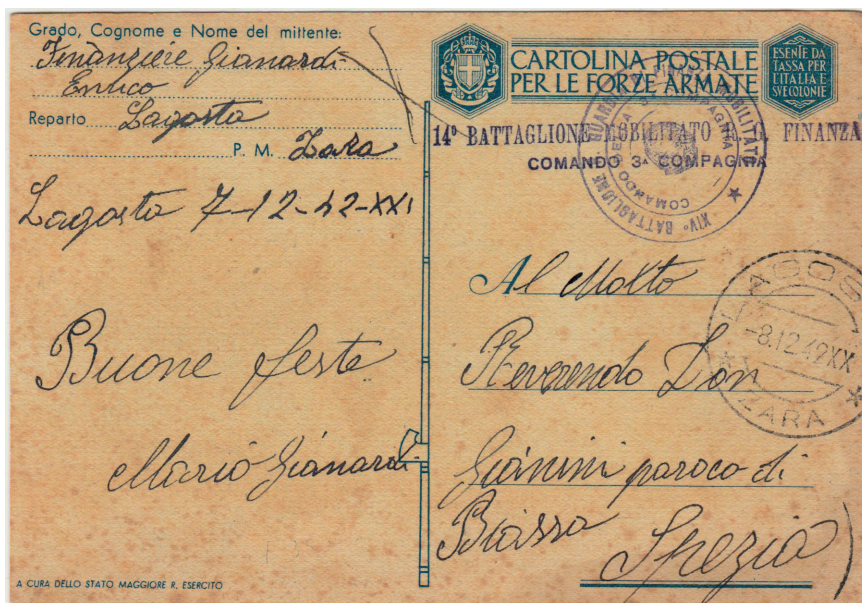 Grado, Cognome e Nome del mittente:
Finanziere Gianardi
Enrico
Reparto Lagosta
P. M. Zara
Lagosta 7-12-42-XXI
Buone feste
Mario Gianardi
A CURA DELLO STATO MAGGIORE R. ESERCITO
CARTOLINA POSTALE
PER LE FORZE ARMATE
ESENTE DA
TASSA PER
L'ITALIA E
SUE COLONIE
14º BATTAGLIONE MOBILITATO R. G. FINANZA
COMANDO 3ª COMPAGNIA
XIVº BATTAGLIONE GUARDIA DI FINANZA MOBILITATO
COMANDO DELLA 3ª COMPAGNIA
LAGOSTA
-8.12.42XX
ZARA
Al Molto
Reverendo Don
Gianini paroco di
Biassa
Spezia)